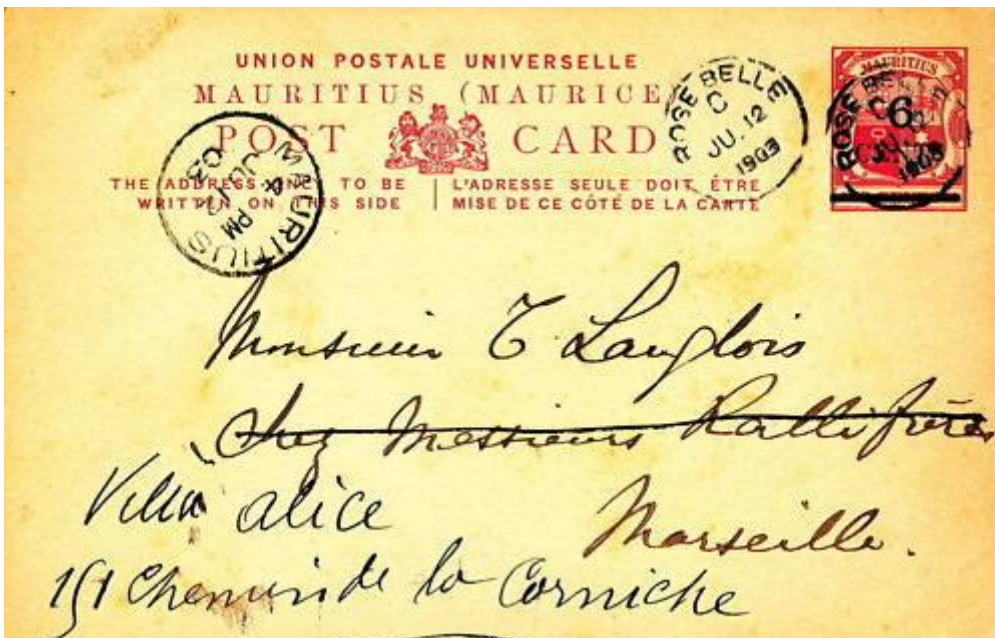 UNION POSTALE UNIVERSELLE
MAURITIUS (MAURICE)
POST CARD
THE ADDRESS ONLY TO BE
WRITTEN ON THIS SIDE
L'ADRESSE SEULE DOIT ÊTRE
MISE DE CE CÔTÉ DE LA CARTE
ROSE BELLE
C
JU. 12
1903
MAURITIUS
6
ROSE BELLE
1903
MAURITIUS
PM
JU
03
Monsieur T Langlois
Chez Messieurs Ralli frères
Marseille.
Villa alice
151 Chemin de la Corniche